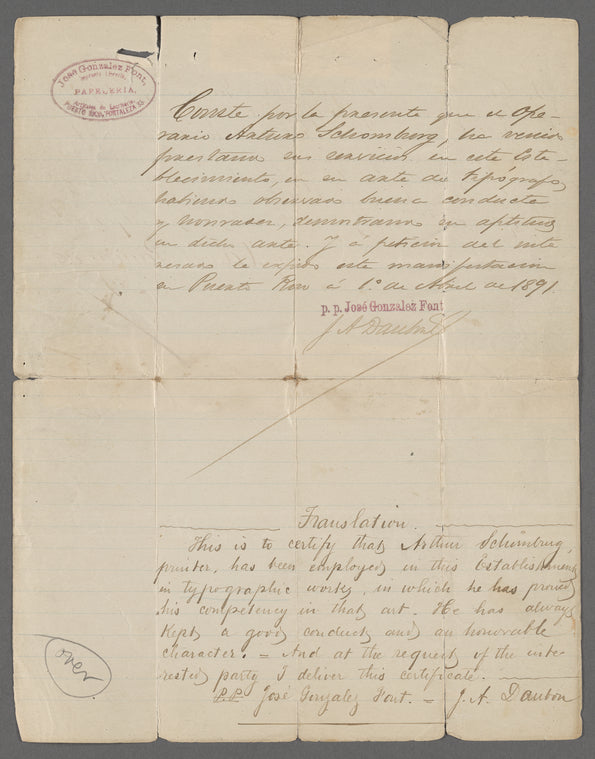 José Gonzalez Font,
Imprenta, Librería,
PAPELERIA,
Artículos de Escritorio
PUERTO RICO, FORTALEZA 33
Conste por la presente que el Ope-
rario Arturo Schomburg, ha venido
prestando sus servicios en este Esta-
blecimiento, en su arte de tipógrafo,
habiendo observado buena conducta
y honradez, demostrando su aptitud
en dicho arte. Y á petición del inte
resado le expido esta manifestacion
en Puerto Rico á 1º de Abril de 1891.
p. p. José Gonzalez Font
J A Daubon
Translation.
This is to certify that Arthur Schömburg,
printer, has been employed in this Establishment
in typographic works, in which he has proved
his competency in that art. He has always
Kept a good conduct and an honorable
character. = And at the request of the inte
rested party I deliver this certificate.
P.P. José Gonzalez Font. = J. A. Daubon
over